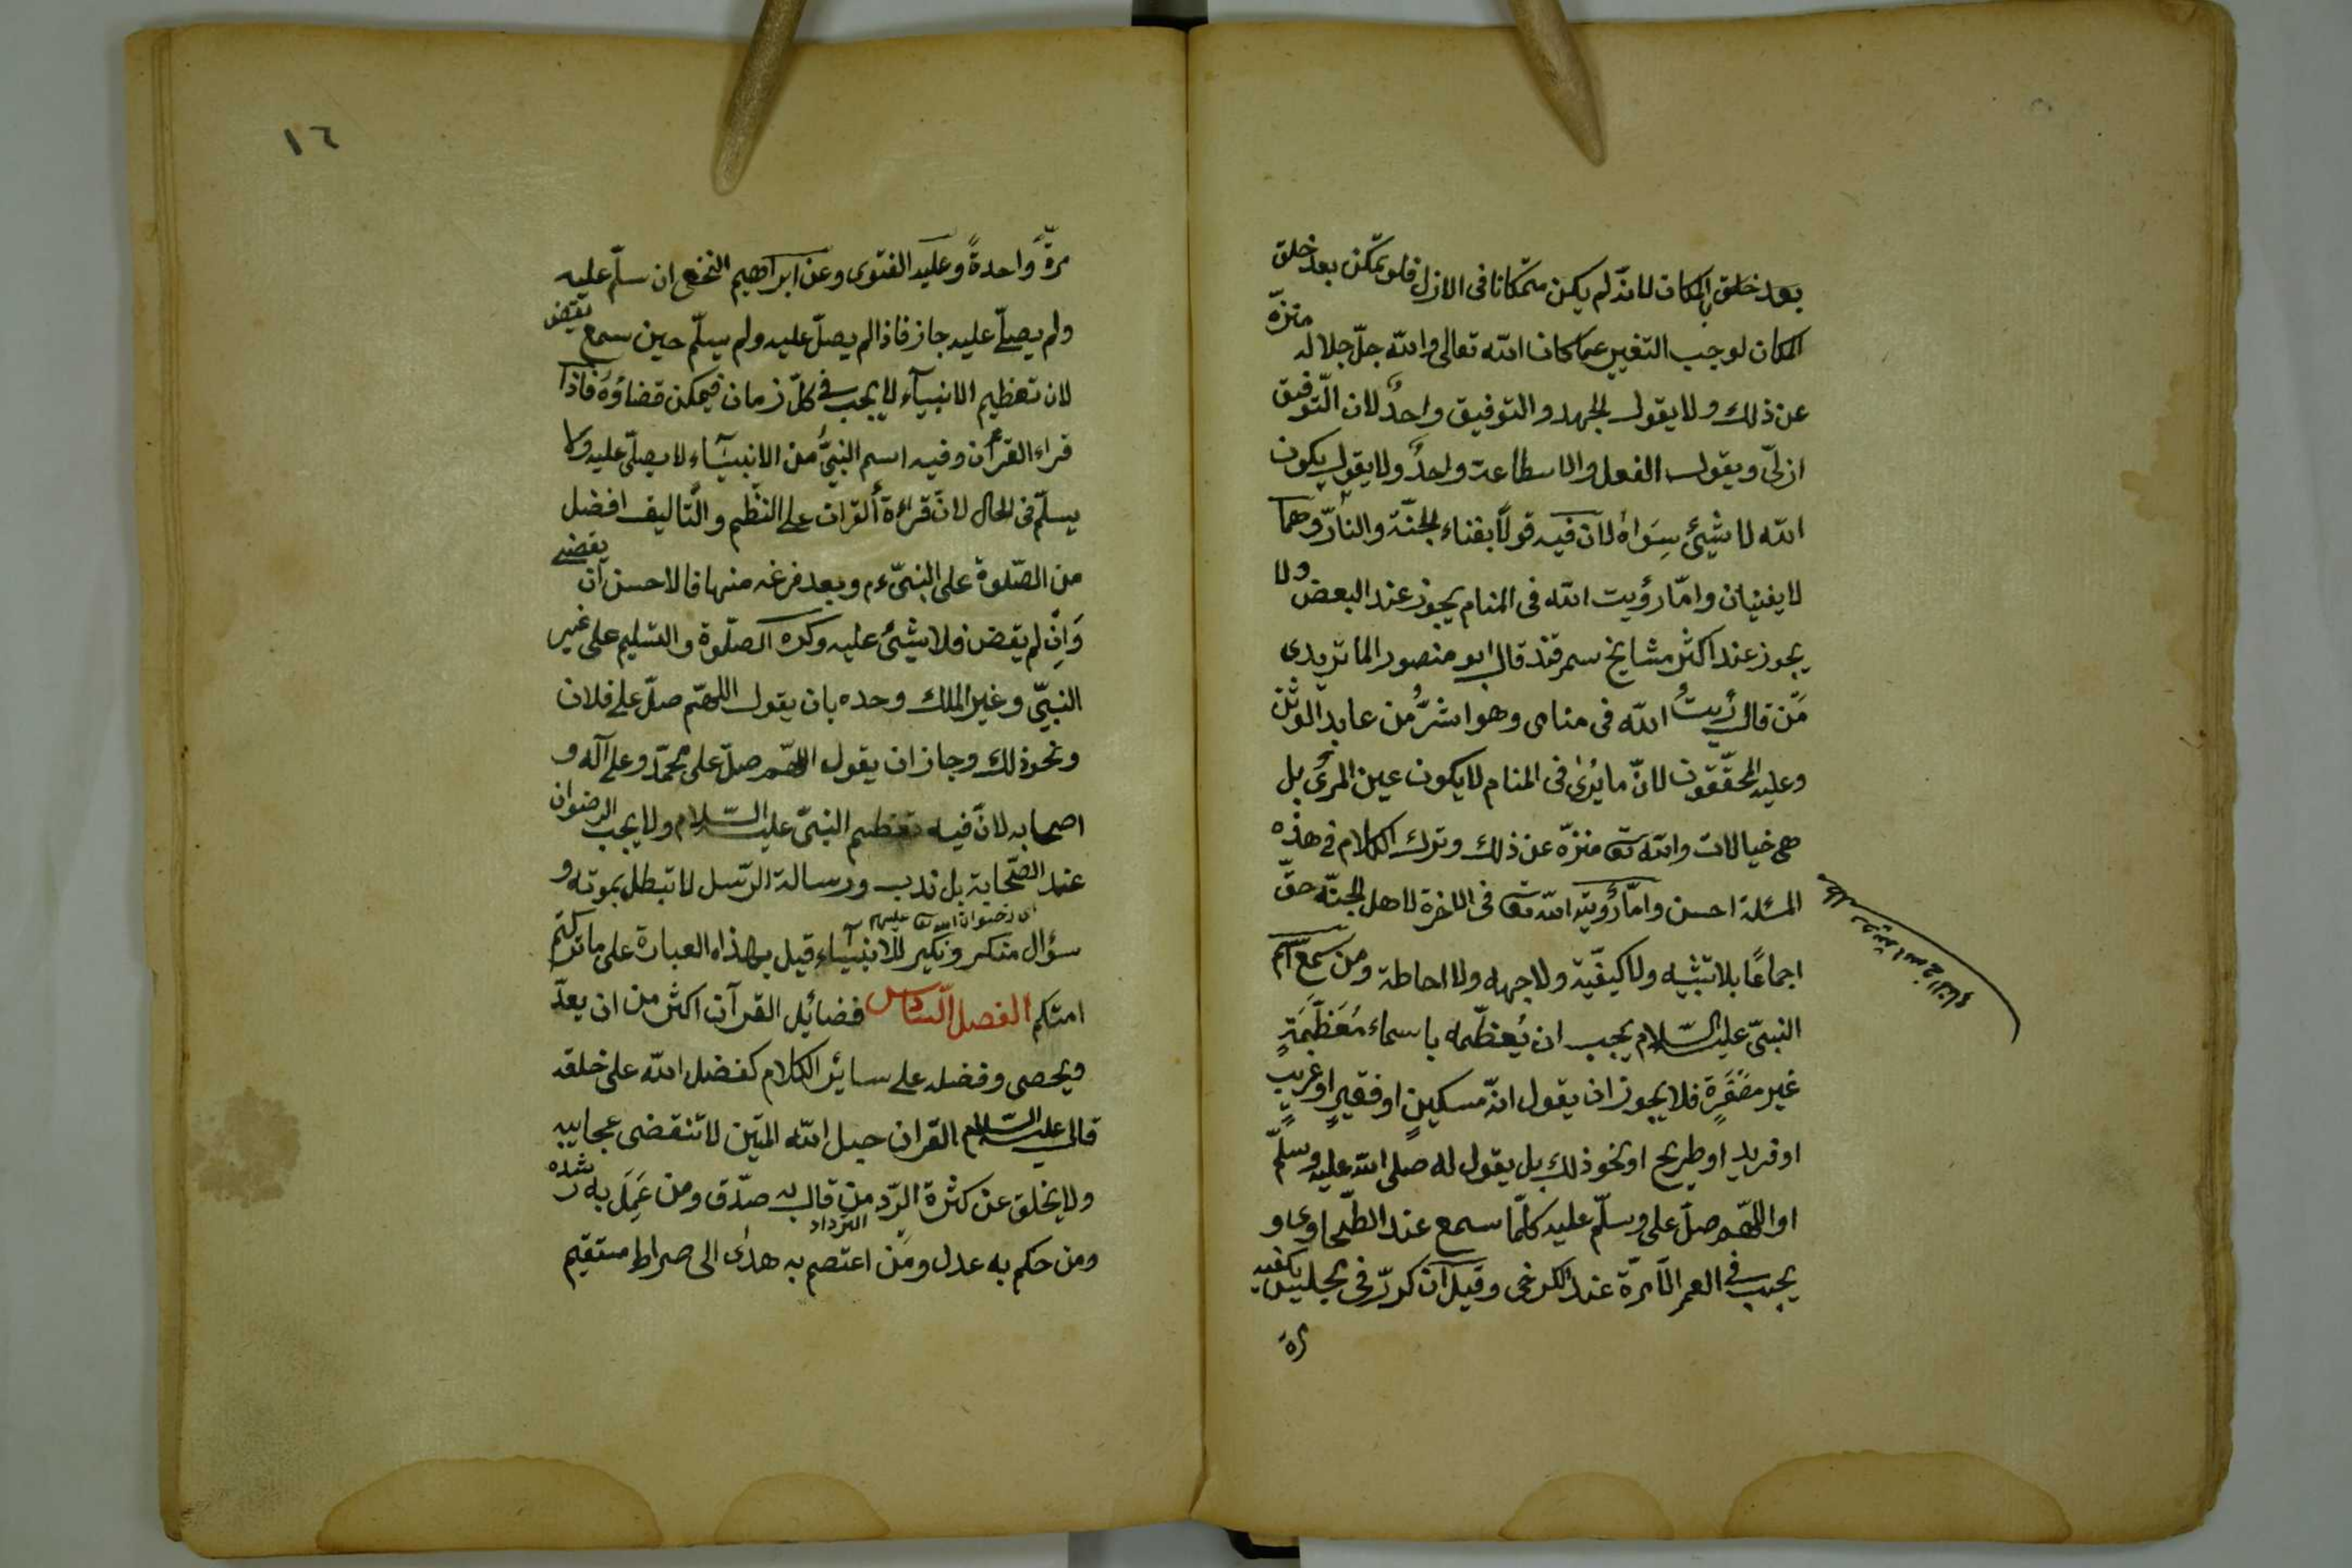 بعد خلق المكان لانّه لم يكن متمكانا فى الازل فلو تمكّن بعد خلق
المكان لوجب التغيير عما كان الله تعالى والله جلّ جلاله منزّه
عن ذلك ولا يقول الجهد والتوفيق واحدٌ لان التّوفيق
ازلىّ ويقول الفعل والاسطاعة واحدٌ ولا يقول يكون
الله لا شيئ سِوَاهُ لان فيه قولاً بفناء الجنّة والنار وهما
لا يفنيان وامّا رؤيت الله فى المنام يجوز عند البعض ولا
يجوز عند اكثر مشايخ سمرقند قال ابو منصور الماتريدى
مَن قال رأيتُ الله فى منامى وهو اشرُّ من عابد الوثن
وعليه المحقّقون لانّ ما يُرىٰ فى المنام لا يكون عين المرئ بل
هى خيالات والله تعا منزّه عن ذلك وترك الكلام فى هذه
المسئلة احسن وامّا رؤية الله تعا فى الاخرة لاهل الجنّة حقّ
اجماعًا بلا تشبيه ولا كيفيّة ولا جهه ولا احاطة ومن سمع اسم
النبىّ عليه السّلام يجب ان يُعظّمه باسماء مُعَظَّمَةٍ
غير مصَغَّرَة فلا يجوز ان يقول انّه مسكينٍ او فقيرٍ او غريبٍ
او فريد او طريح او نحو ذلك بل يقول له صلى الله عليه وسلّم
او اللهّم صلّ على وسلّم عليه كلّما سمع عند الطّحاوى و
يجب فى العمر الّا مرّة عند الكرخى وقيل ان كرّر فى مجلس يكفيه
مرة
١٦
مرّةً واحدةً وعليه الفتوى وعن ابراهيم النخعى ان سلّم عليه
ولم يصلّ عليه جاز فاذا لم يصلّ عليه ولم يسلّم حين سمع يقضى
لان تعظيم الانبياء لا يجب فى كلّ زمان فيمكن قضاؤه فاذا
قراء القرآن وفيه اسم النبىّ من الانبياء لا يصلّى عليه ولا
يسلّم فى الحال لانّ قراءة القران على النّظم والتّاليف افضل
من الصّلوة على النبىّ ءم وبعد فرغه منها فالاحسن ان يقضى
وَاِن لم يقض فلا شيئ عليه وكره الصلّوة والتسليم على غير
النبىّ وغير الملك وحده بان يقول اللهمّ صلّ على فلان
ونحو ذلك وجاز ان يقول اللهّم صلّ على محمّد وعلى آله و
اصحابه لانّ فيه تعظيم النبىّ عليه السّلام ولا يجب الرضوان
عند الصّحابة بل ندب ورسالة الرّسل لا تبطل بموته و
اى رضوان الله تعا عليهم
سؤال منكر ونكير للانبياء قيل بهذاه العبارة على ما تركتم
امتكم الفصل السّادس فضائيل القرآن اكثر من ان يعدّ
ويحصى وفضله على سائر الكلام كفضل الله على خلقه
قال عليه السّلام القران حبل الله المتين لا تنقضى عجايبه
ولا يخلق عن كثرة الرّد من قال به صدّق ومن عَمِلَ به رشده
الترداد
ومن حكم به عدل ومَن اعتصم به هدى الى صراط مستقيم